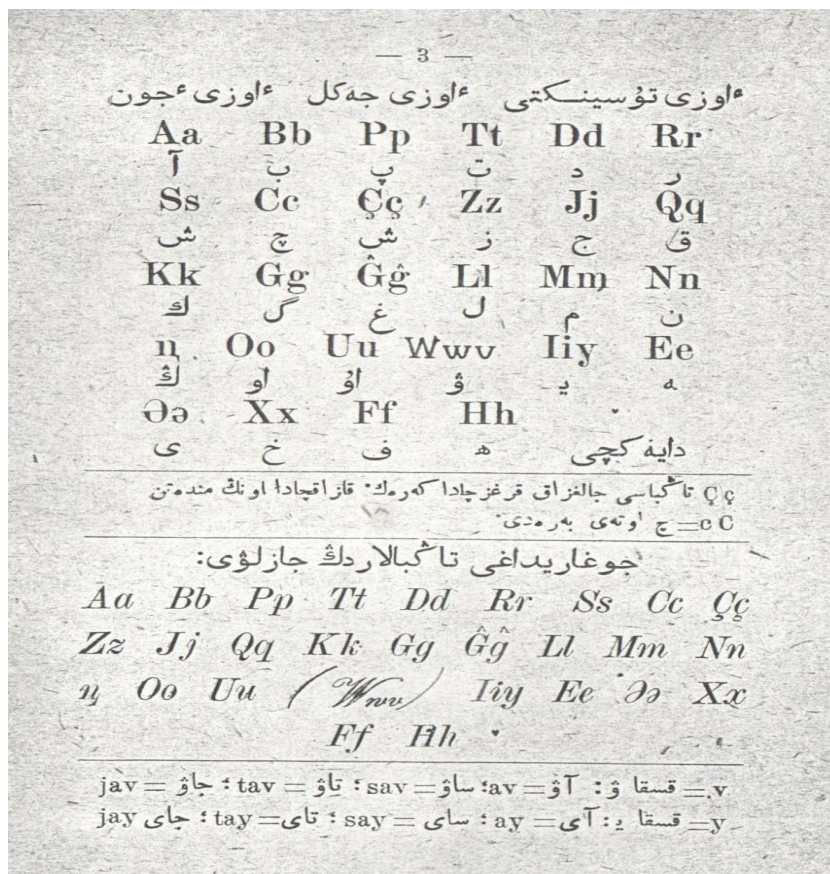 — 3 —
ٴاوزى تۇسينىكتى ٴاوزى جەكل ٴاوزى ٴجون
Aa Bb Pp Tt Dd Rr
آ ب پ ت د ر
Ss Cc Çç Zz Jj Qq
ش چ ش ز ج ق
Kk Gg Ĝĝ Ll Mm Nn
ك گ غ ل م ن
ꞑ Oo Uu Wwv Iiy Ee
ڭ او اۇ ۋ ي ە
Әə Xx Ff Hh
ى خ ف ھ دايەكچى
Ç ç تاڭباسى جالغزاق قرغزچادا كەرەك٠ قازاقچادا اونڭ مندەتن
c C = چ اوتەى بەرەدى٠
جوغاريداغى تاڭبالاردڭ جازلۋى:
Aa Bb Pp Tt Dd Rr Ss Cc Çç
Zz Jj Qq Kk Gg Ĝĝ Ll Mm Nn
ꞑ Oo Uu (Wwv) Iiy Ee Әə Xx
Ff Hh
v = قسقا ۋ: آۋ = av؛ ساۋ = sav؛ تاۋ = tav؛ جاۋ = jav
y = قسقا ي: آى = ay؛ ساى = say؛ تاى = tay؛ جاى jay